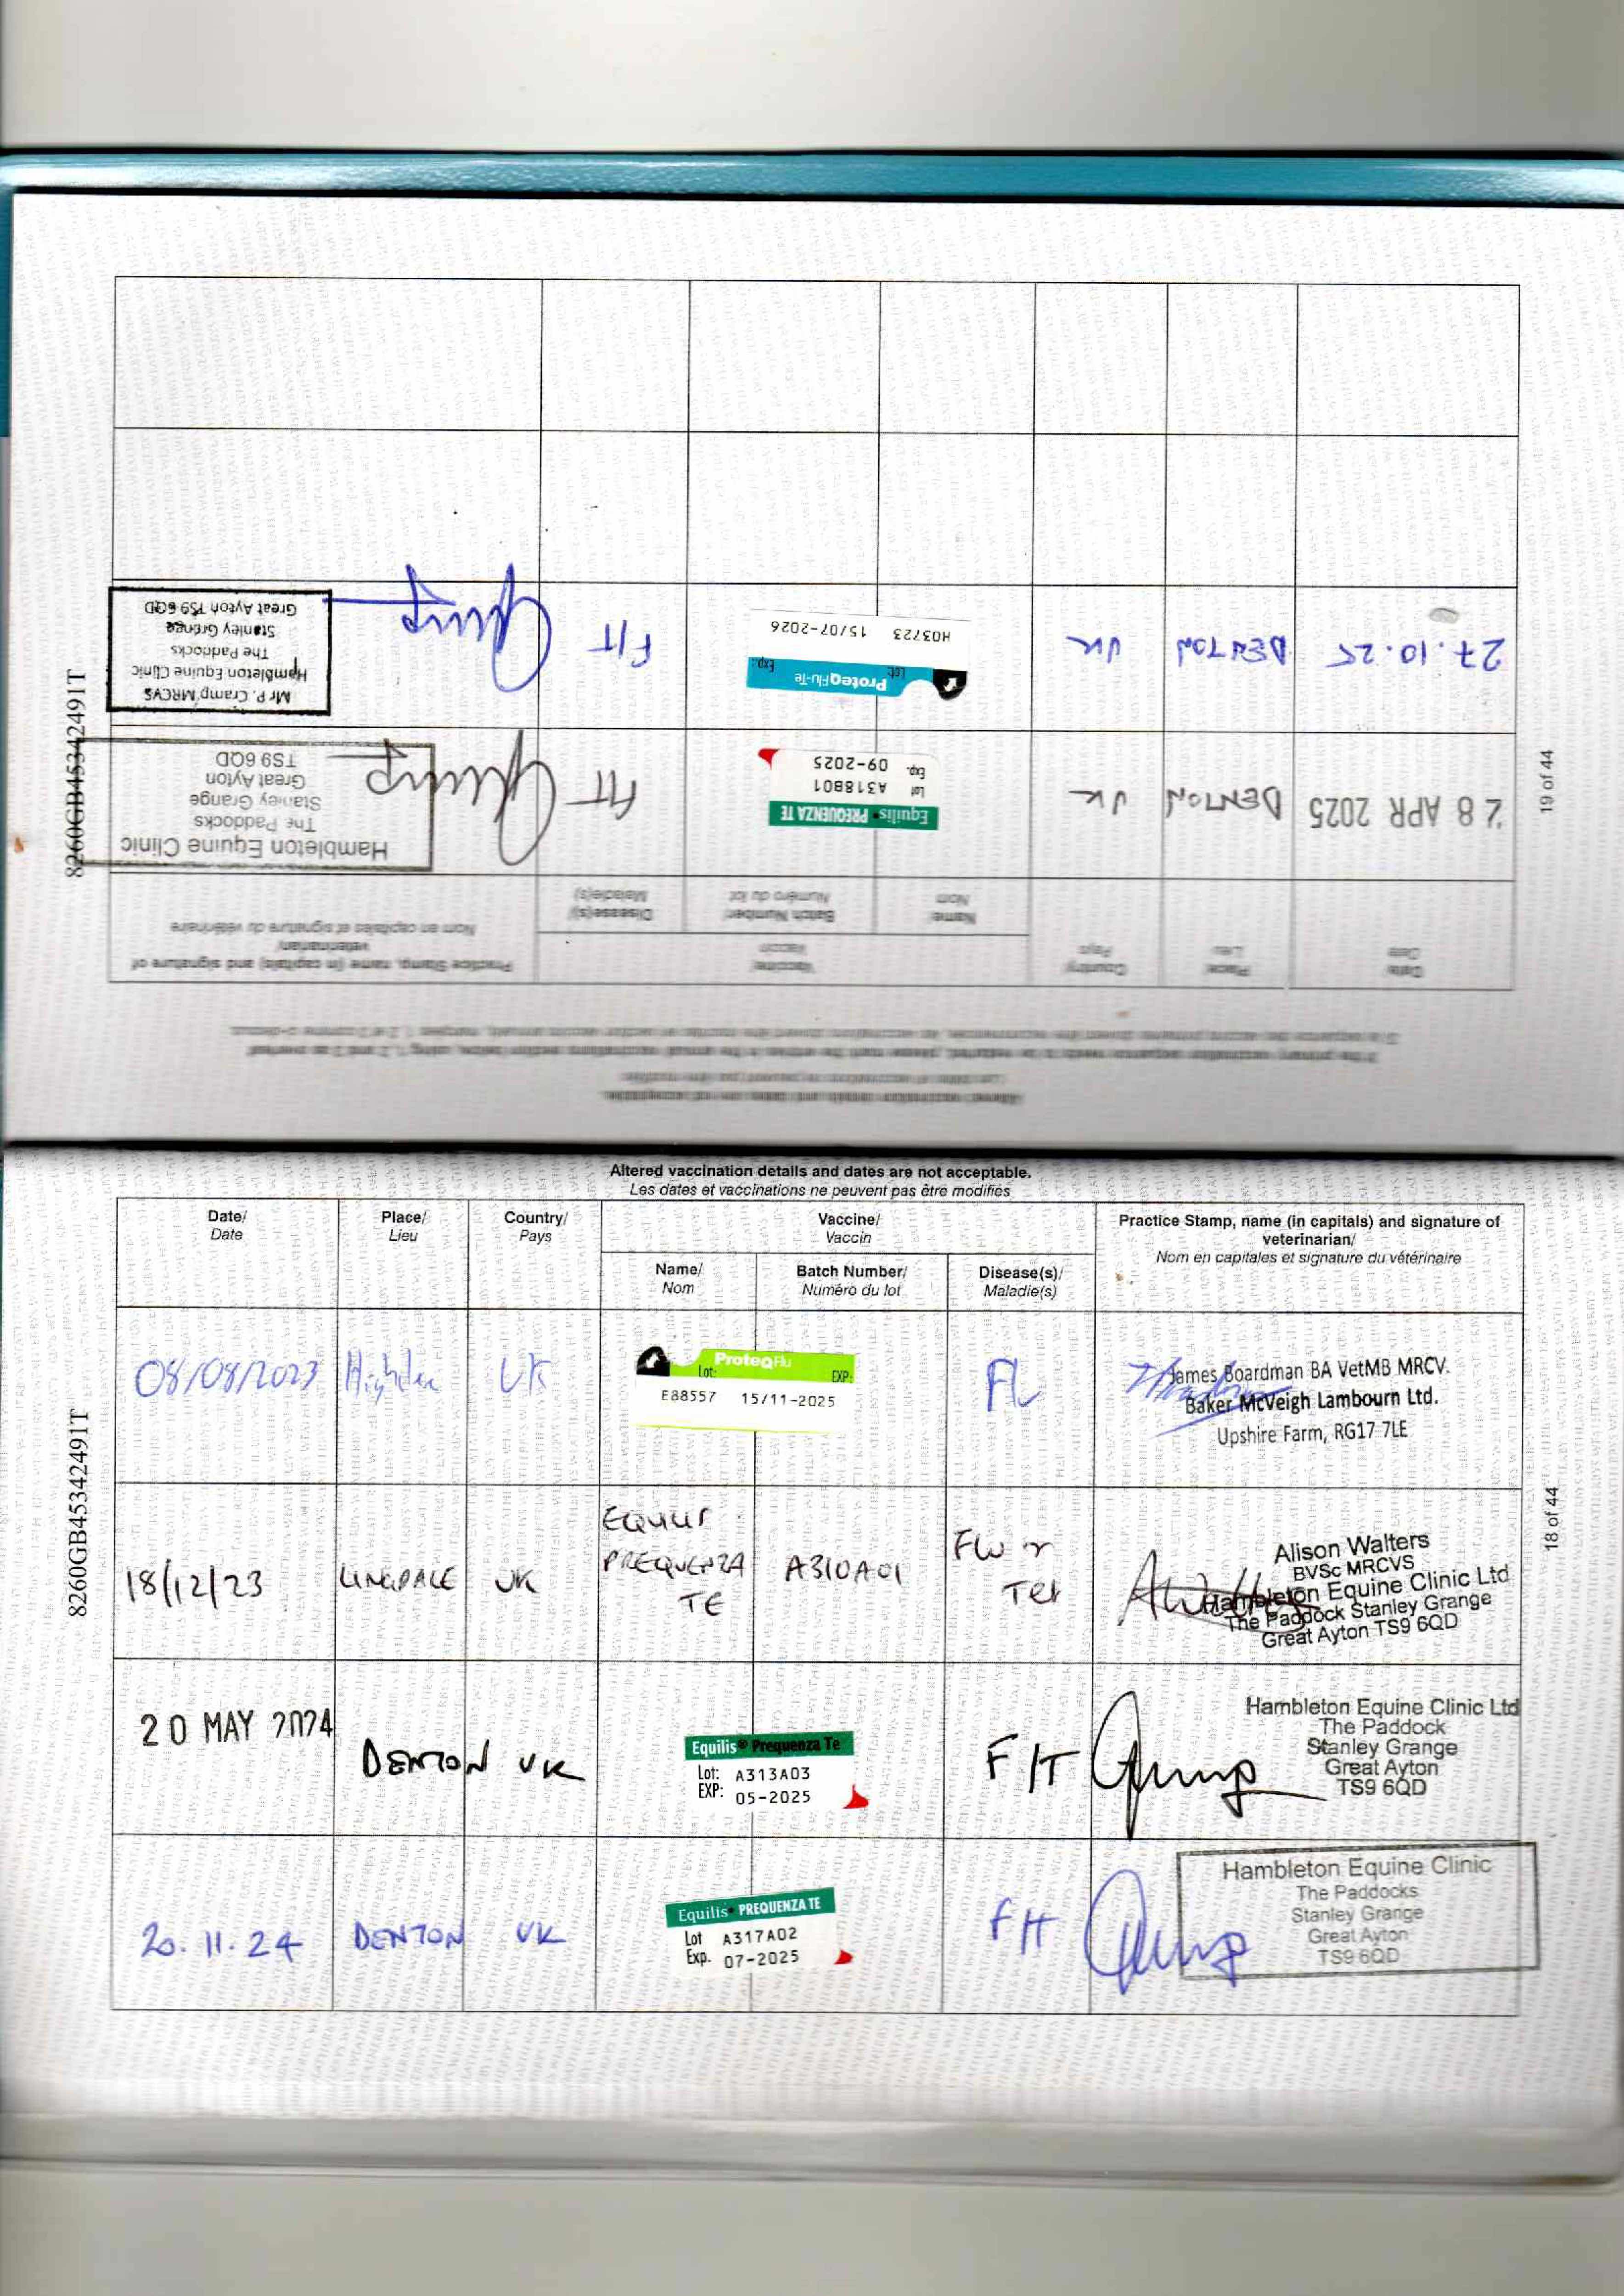 Altered vaccination details and dates are not acceptable.
Les dates et vaccinations ne peuvent pas être modifiés
Date/
Date
Place/
Lieu
Country/
Pays
Vaccine/
Vaccin
Name/
Nom
Batch Number/
Numéro du lot
Disease(s)/
Maladie(s)
Practice Stamp, name (in capitals) and signature of
veterinarian/
Nom en capitales et signature du vétérinaire
08/08/2023
UK
ProteqFlu
Lot: EXP:
E88557 15/11-2025
FL
James Boardman BA VetMB MRCV.
Baker McVeigh Lambourn Ltd.
Upshire Farm, RG17 7LE
18/12/23
LINGDALE
UK
PREQUENZA
TE
A310A01
Tet
Alison Walters
BVSc MRCVS
Hambleton Equine Clinic Ltd
The Paddock Stanley Grange
Great Ayton TS9 6QD
20 MAY 2024
DENTON
UK
Equilis® Prequenza Te
Lot: A313A03
EXP: 05-2025
F/T
Hambleton Equine Clinic Ltd
The Paddock
Stanley Grange
Great Ayton
TS9 6QD
20.11.24
DENTON
UK
Equilis® PREQUENZA TE
Lot A317A02
Exp. 07-2025
F/T
Hambleton Equine Clinic
The Paddocks
Stanley Grange
Great Ayton
TS9 6QD
8260GB45342491T
18 of 44
Altered vaccination details and dates are not acceptable.
Les dates et vaccinations ne peuvent pas être modifiés
Date
Date
Place
Lieu
Country
Pays
Vaccine/
Vaccin
Name
Nom
Batch Number/
Numéro du lot
Disease(s)/
Maladie(s)
Practice Stamp, name (in capitals) and signature of
veterinarian/
Nom en capitales et signature du vétérinaire
28 APR 2025
DENTON
UK
Equilis® PREQUENZA TE
Lot A318B01
Exp. 09-2025
F/T
Hambleton Equine Clinic
The Paddocks
Stanley Grange
Great Ayton
TS9 6QD
27.10.25
DENTON
UK
ProteqFlu-Te
Lot: Exp:
H03723 15/07-2026
F/T
Mr P. Cramp MRCVS
Hambleton Equine Clinic
The Paddocks
Stanley Grange
Great Ayton TS9 6QD
8260GB45342491T
19 of 44